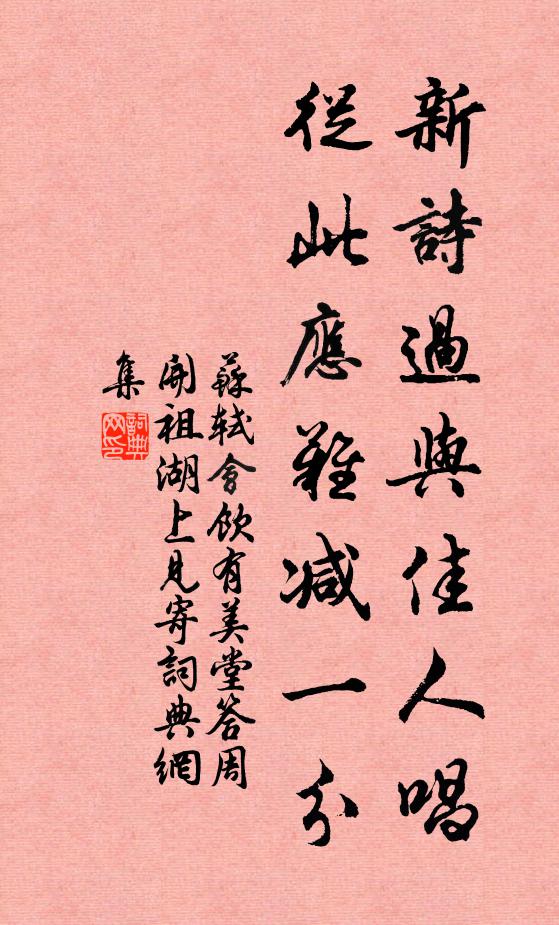 新詩過與佳人唱
從此應難減一分
蘇軾會飲有美堂答周
開祖湖上見寄詞典網
集
詞典網印